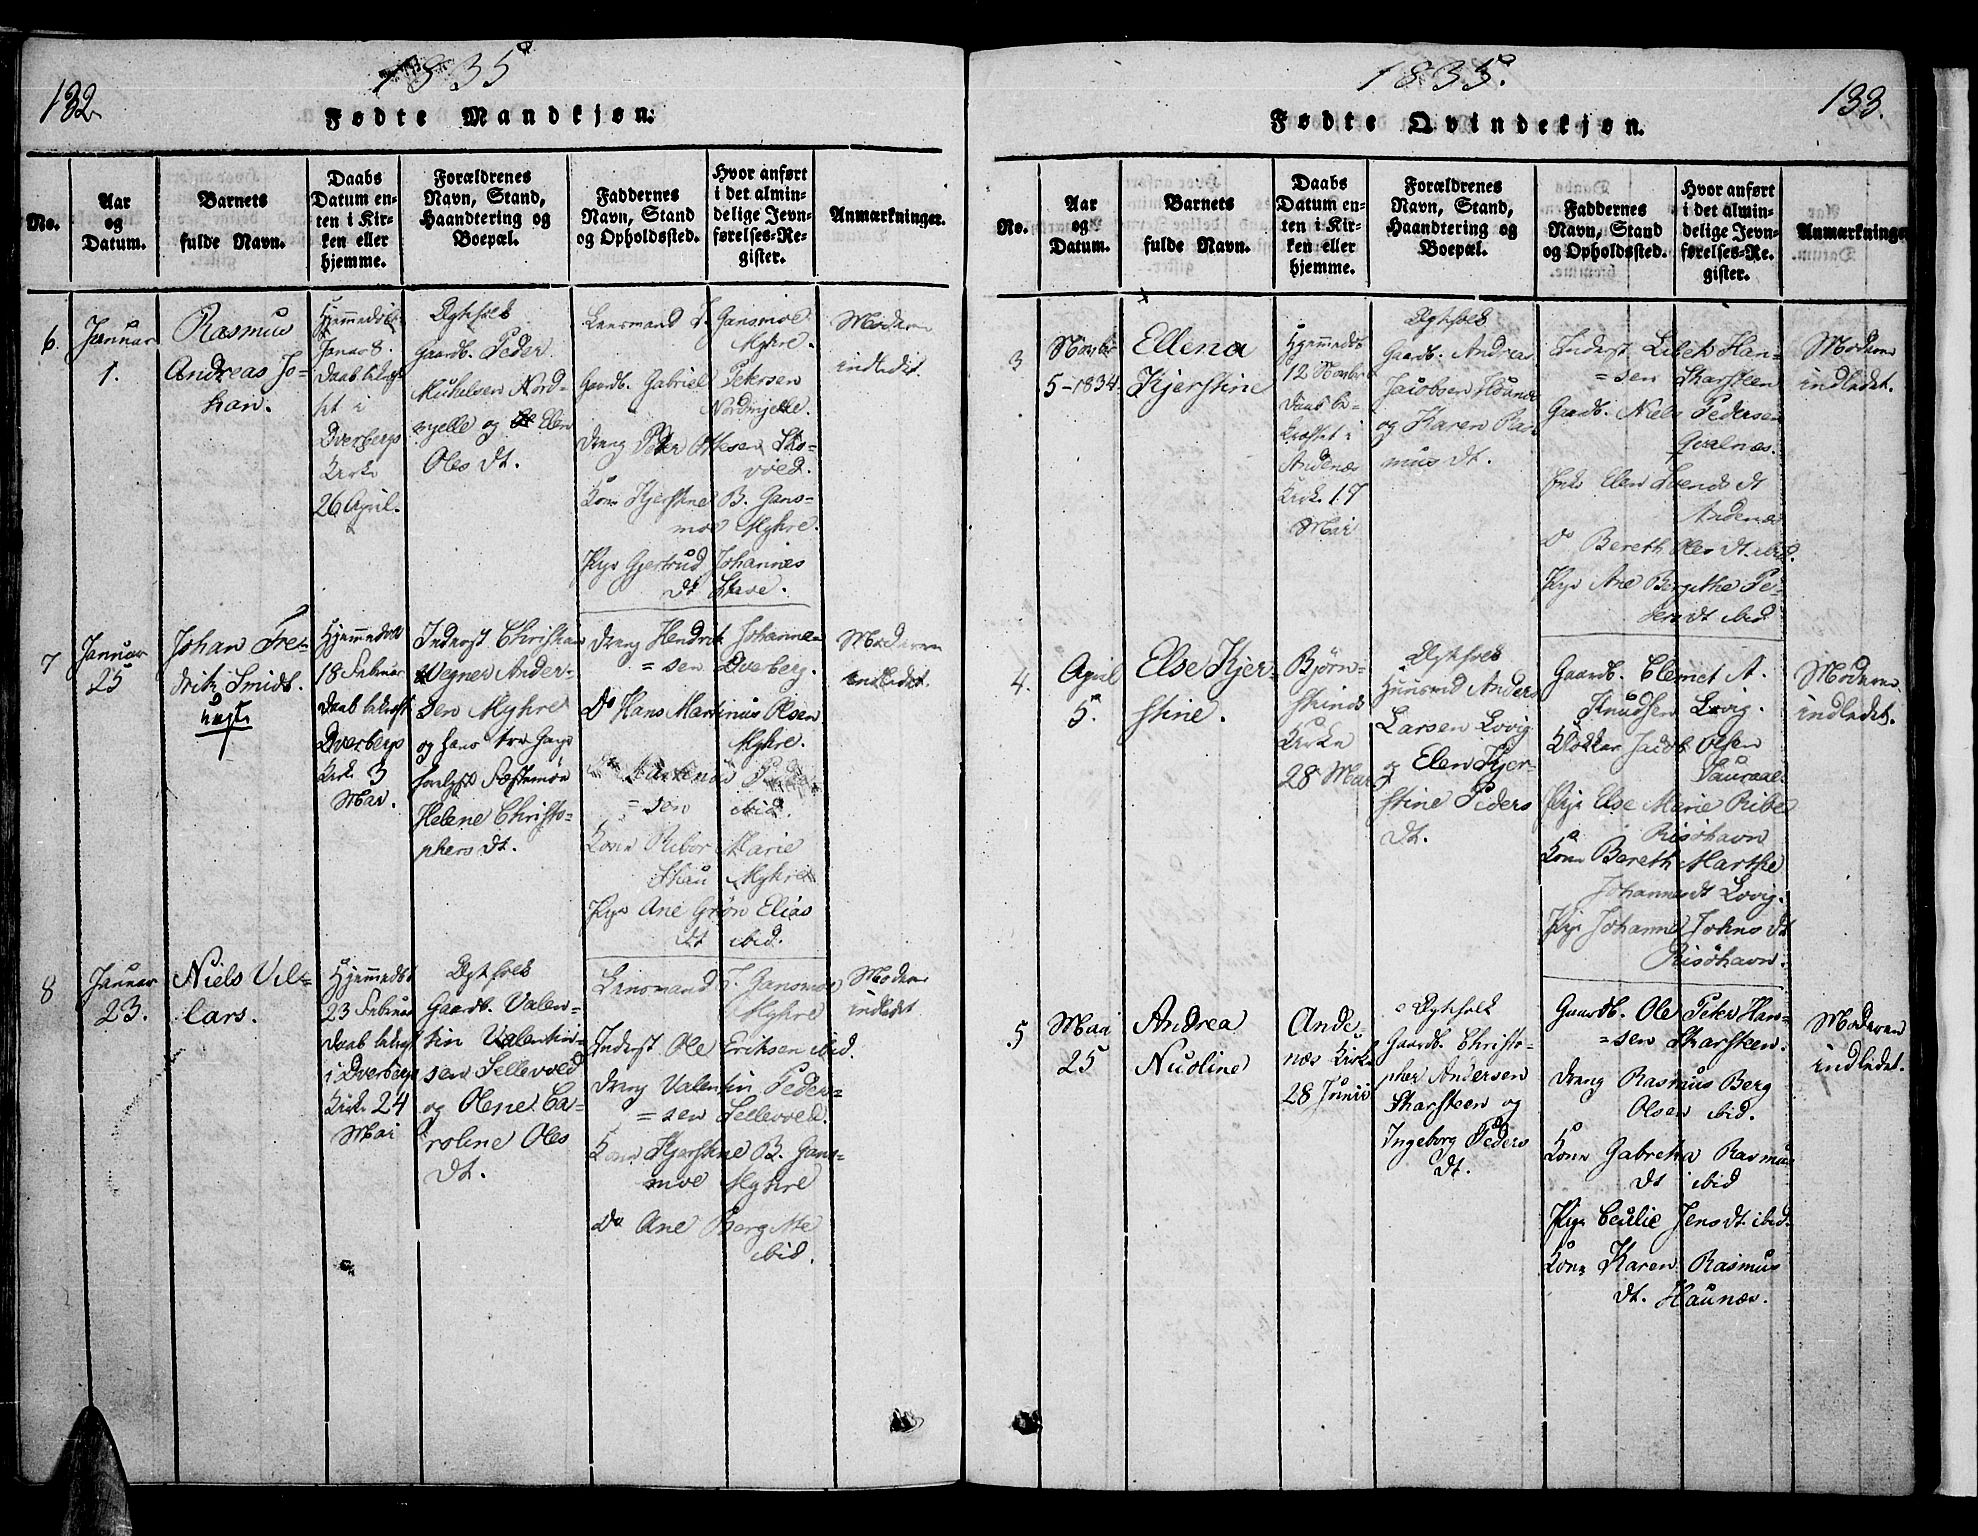 132.
1835
Fødte Mandkjøn.
No.
Aar
og
Datum.
Barnets
fulde Navn.
Daabs
Datum en-
ten i Kir-
ken eller
hjemme.
Forældrenes
Navn, Stand,
Haandtering og
Boepæl.
Faddernes
Navn, Stand
og Opholdssted.
Hvor anført
i det almin-
delige Jevn-
førelses-Re-
gister.
Anmærkninger.
6.
Januar
1.
Rasmus
Andreas Jo-
han.
Hjemmedøbt
Januar 8.
Daab bekræf-
tet i
Dverbergs
Kirke
26 April.
Ægtfolk
Gaardb. Peder
Mikelsen Nord-
myelle og Elen
Oles dt.
Lensmand J. Gansmoe
Myhre.
Gaardb. Gabriel Petersen
Nordmyelle.
Dreng Peter Ottesen Sko-
vold.
Kone Kjerstine B. Gans-
moe Myhre.
Pige Gjertrud Johannes
dt Stave.
Moderen
indledet.
7
Januar
25
Johan Fre-
drik Smidt.
uægte
Hjemmedøbt
18 Februar
Daab bekræft.
Dverbergs
Kirke 3
Mai.
Inderst Christian
Wegner Ander-
sen Myhre
og hans
Fæstemøe
Helene Christo-
phers dt.
Dreng Hendrik Johanne-
sen Dverberg.
Do Hans Martinus Olsen
Myhre.
=sen ibid.
Kone Marie
Skau Myhre
Pige Ane Grøn Elias
dt ibid.
Moderen
indledet.
8
Januar
23.
Niels Vil-
lars.
Hjemmedøbt
23 Februar
Daab bekræft
i Dverbergs
Kirke 24
Mai
Ægtfolk
Gaardb. Valen-
tin Valentin-
sen Sellevold
og Olene Ca-
roline Oles
dt.
Lensmand J. Gansmoe
Myhre
Inderst Ole Eriksen ibid.
Dreng Valentin Peder-
=sen Sellevold.
Kone Kjerstine B. Gans-
moe Myhre
Do Ane Bergitte
ibid.
Moderen
indledet
1835.
133.
Fødte Qvindekjøn.
No.
Aar
og
Datum.
Barnets
fulde Navn.
Daabs
Datum en-
ten i Kir-
ken eller
hjemme.
Forældrenes
Navn, Stand,
Haandtering og
Boepæl.
Faddernes
Navn, Stand
og Opholdssted.
Hvor anført
i det almin-
delige Jevn-
førelses-Re-
gister.
Anmærkninge
3
Novbr
5-1834
Ellena
Kjerstine
Hjemmedøbt
12 Novbr
Daab be-
kræftet i
Andenæs
Kirke 17
Mai
Ægtfolk
Gaardb. Andreas
Jacobsen Haunæs
og Karen Ras-
mus dt.
Inderst Han-
=sen Skarsteen
Gaardb. Niels Pedersen
Qvalnæs.
Enke Elen Svends dt
Andenæs
Do Bereth Oles dt ibid.
Pige Ane Bergithe Pe-
ders dt ibid
Moderen
indledet.
4.
April
5.
Else Kjer-
stine.
Bjørn-
skinds
Kirke
28 Mai
Ægtfolk
Huusmd Anders
Larsen Lovig
og Elen Kjer-
stine Peders
dt.
Gaardb. Clemet A.
Knudsen Lovig.
Klokker Jacob Olsen
Saura
Pige Else Marie Ribe
Risøhavn
Kone Bereth Marthe
Johannes dt Lovig.
Pige Johanne Johns dt
Risøhavn.
Moderen
indledet.
5
Mai
25
Andrea
Nicoline
Ande-
næs Kirke
28 Junii
Ægtfolk
Gaardb. Christo-
pher Andersen
Skarsteen og
Ingeborg Peders
dt.
Gaardb. Ole Peter Han-
=sen Skarsteen.
Dreng Rasmus Berg
Olsen ibid.
Kone Rasmus
dt ibid
Pige Cecilie Jens dt. ibid.
Kone Karen Rasmus
dt. Haunæs.
Moderen
indledet.